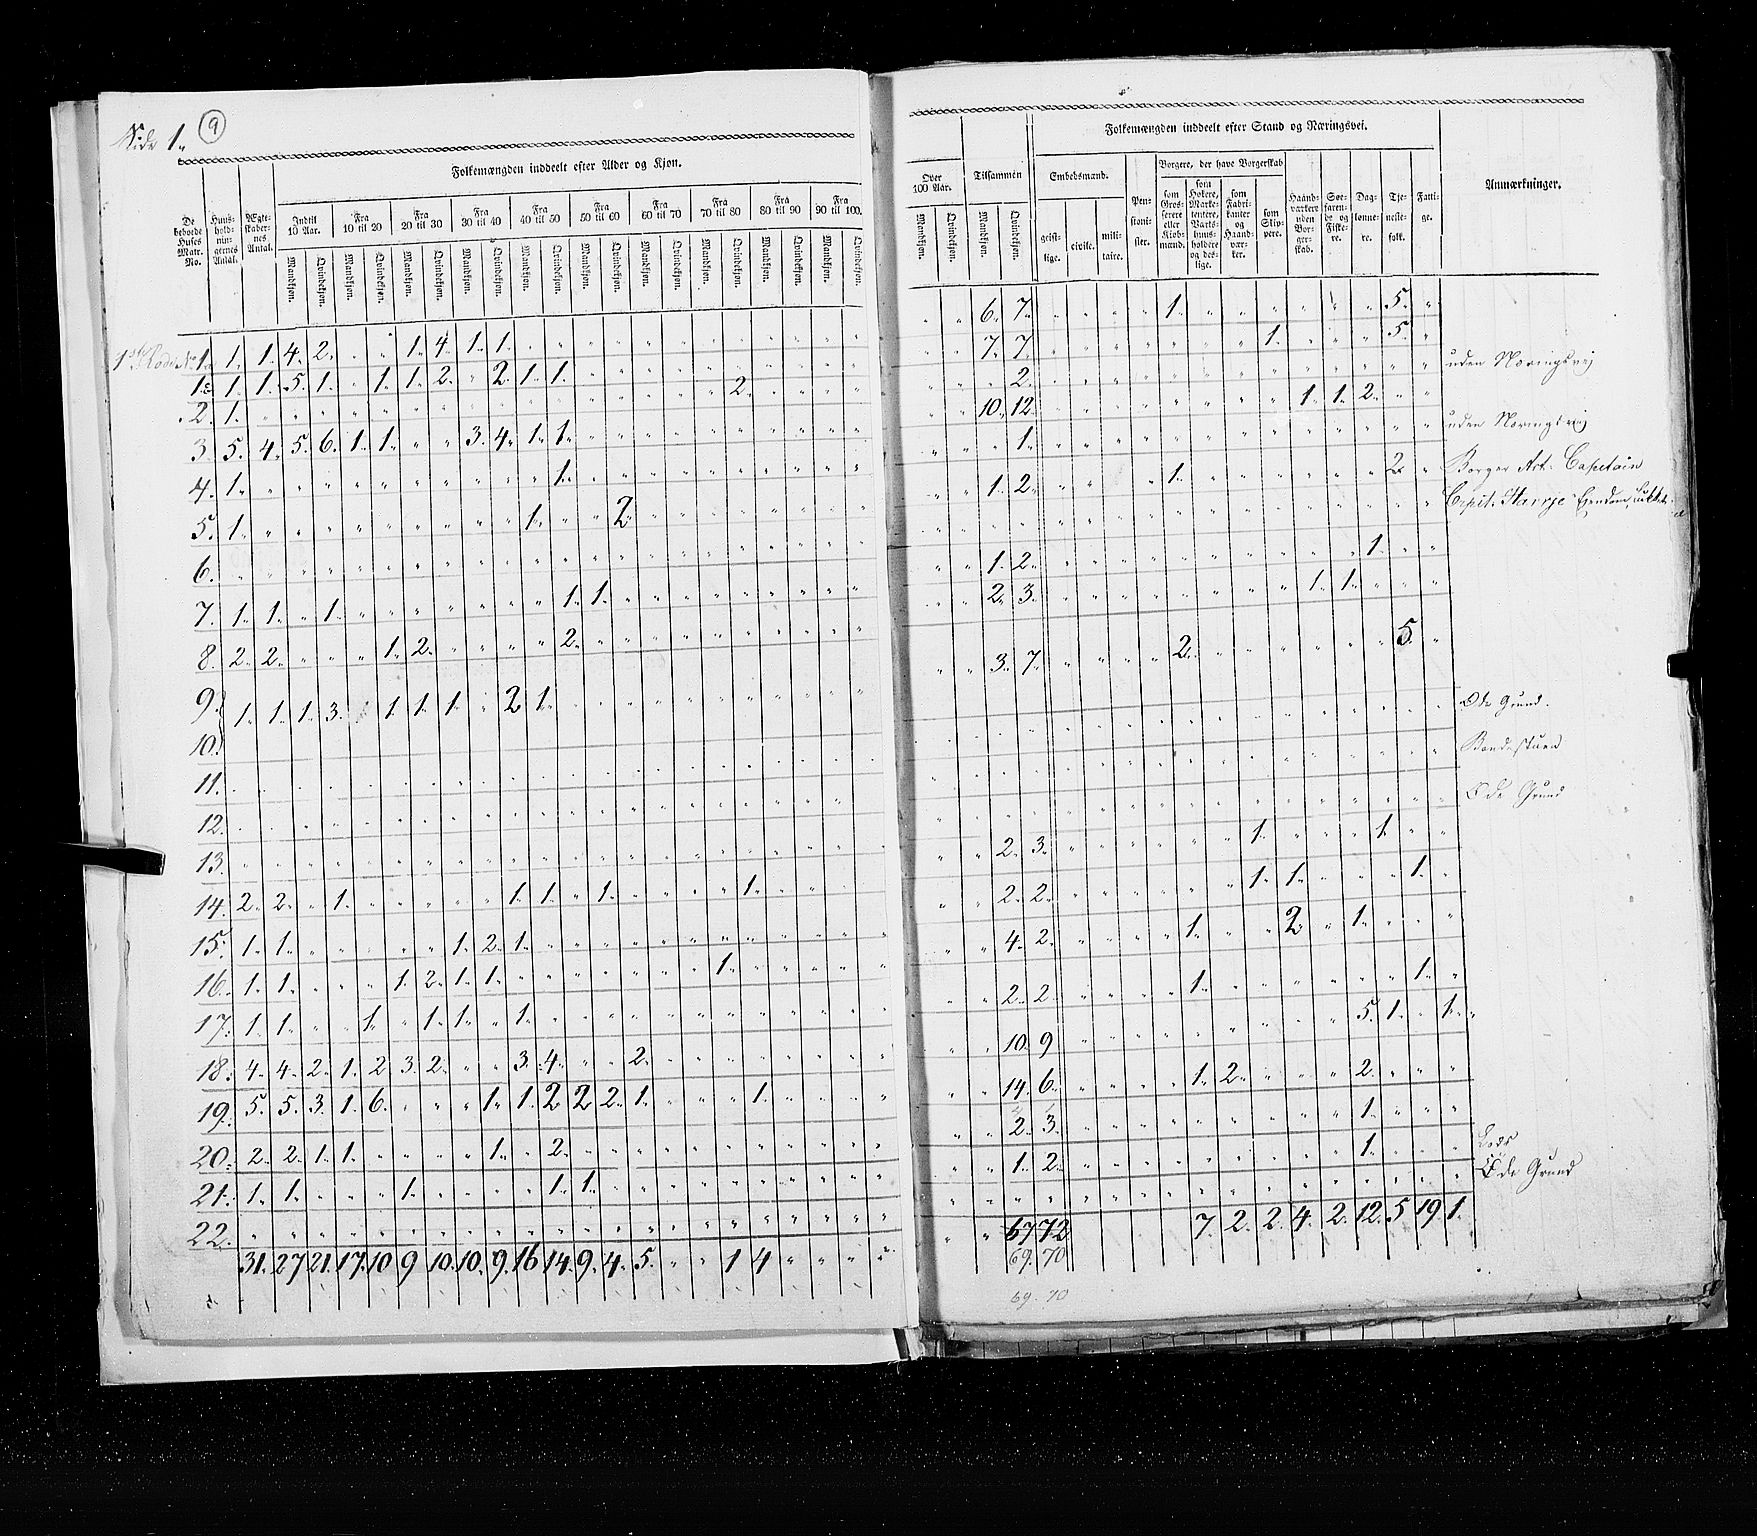 Side 1. (9)
Folkemængden inddeelt efter Alder og Kjøn.
De beboede Huses Matr. No. | Huus-hold-nin-gernes Antal. | Ægte-skaber-nes Antal. | Indtil 10 Aar. | Fra 10 til 20 | Fra 20 til 30 | Fra 30 til 40 | Fra 40 til 50 | Fra 50 til 60 | Fra 60 til 70 | Fra 70 til 80 | Fra 80 til 90 | Fra 90 til 100.
Mandkjøn. | Qvindekjøn. | Mandkjøn. | Qvindekjøn. | Mandkjøn. | Qvindekjøn. | Mandkjøn. | Qvindekjøn. | Mandkjøn. | Qvindekjøn. | Mandkjøn. | Qvindekjøn. | Mandkjøn. | Qvindekjøn. | Mandkjøn. | Qvindekjøn. | Mandkjøn. | Qvindekjøn. | Mandkjøn. | Qvindekjøn.
1ste Rode No 1. 1. 1. 4. 2. " " 1. 4. 1. 1.
1. 1. 5. 1. " 1. 1. 2. " 2. 1. 1.
2. 1. 2.
3. 5. 4. 5. 6. 1. 1. " " 3. 4. 1. 1.
4. 1. 1.
5. 1. 1. " " 2
6.
7. 1. 1. " 1. 1. 1.
8. 2. 2. " " " 1. 2. 2.
9. 1. 1. 1. 3. 1. 1. 1. " 2 1.
10.
11.
12.
13.
14. 2. 2. " 1. 1. 1. " 1. 1.
15. 1. 1. 1. 2. 1.
16. 1. 1. 1. 2. 1. 1. 1.
17. 1. 1. " " 1. " 1. 1. " 1.
18. 4. 4. 2. 1. 2 3. 2. " " 3. 4. " " 2.
19. 5. 5. 3. 1. 6. " " " 1. 1. 2 2 2. 1. 1.
20. 2. 2. 1. 1. 1. " 2.
21. 1. 1. 1. 1. 1.
22.
31. 27 21. 17. 10 9 10. 10. 9. 16 14. 9. 4. 5. " " 1 4
Folkemængden inddeelt efter Stand og Næringsvei.
Over 100 Aar. | Tilsammen | Embedsmænd. | Pen-sioni-ster. | Borgere, der have Borgerskab | Haand-værkere uden Bor-ger-skab. | Søe-faren-de og Fiske-re. | Dag-lønne-re. | Tje-neste-folk. | Fatti-ge. | Anmærkninger.
Mandkjøn. | Qvindekjøn. | Mandkjøn. | Qvindekjøn. | geist-lige. | civile. | mili-taire. | som Gros-serere eller Kiøb-mænd. | som Høkere, Marke-tentere, Værts-huus-holdere og des-lige. | som Fabri-kanter og Haand-vær-ker. | som Skip-pere.
6. 7. 1. 5.
7. 7. 1. 5.
2. uden Næringsvej
10. 12. 1. 1. 2.
1. uden Næringsvej
1. 2. 1. 2. Borger Art. Capetain
Capit. Eiendom
1. 2. 1.
2. 3. 1. 1.
3. 7. 2. 5.
Øde Grund.
Øde Grund
2. 3. 1. 1.
2. 2. 1. 1. 1.
4. 2. 1. 2. 1.
2. 2. 1. 1.
10. 9 5. 1. " 1.
14. 6. 1. 2. 2.
2. 3. 1.
1. 2. 1. Lods
Øde Grund
67 72 7. 2. 2. 4. 2. 12. 5 19 1.
69. 70
69. 70